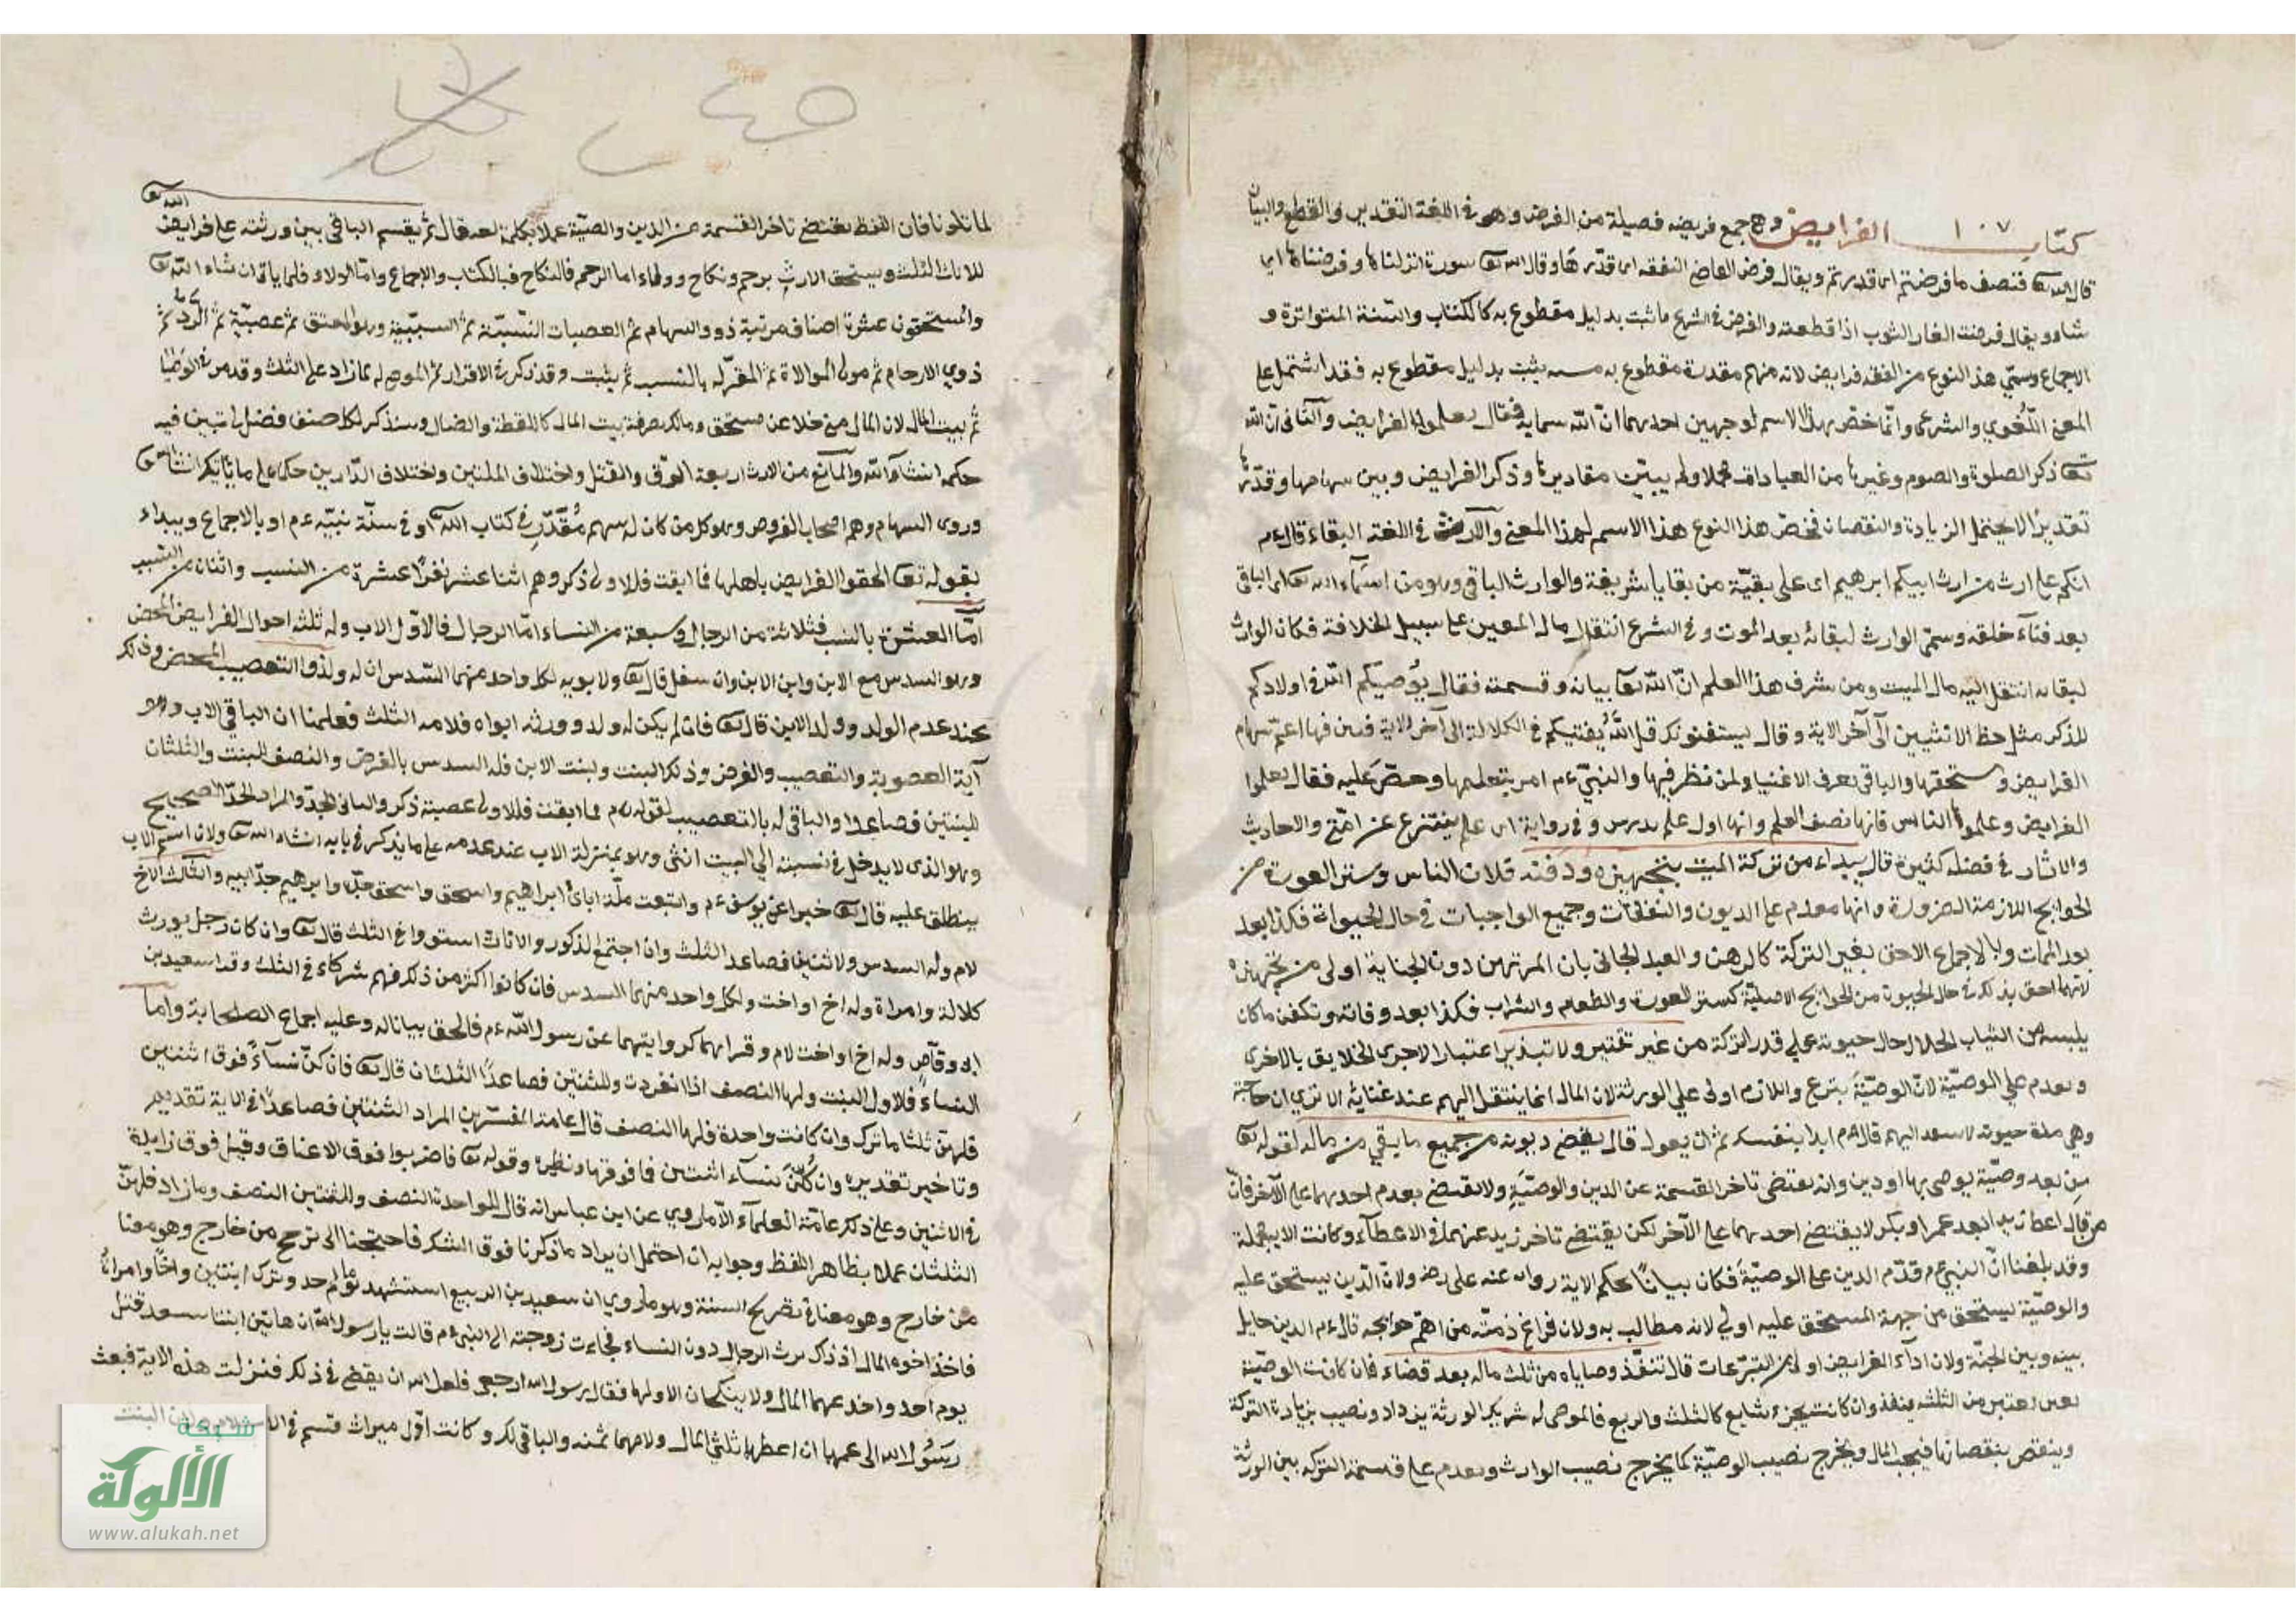 كتاب ١٠٧ الفرايض وهي جمع فريضه فصيلة من الفرض وهو في اللغة التقدير والقطع والبيان
قال الله تع فنصف ما فرضتم اى قدرتم ويقال فرض القاضي النفقه اى قدرها وقال الله تع سورة انزلناها وفرضناها اى
ويقال فرضت الفار الثوب اذا قطعته والفرض في الشرع ما ثبت بدليل مقطوع به كالكتاب والسنة المتواترة و
الاجماع وسمّي هذا النوع من الفقه فرايض لانه سهام مقدرة مقطوع به ثبت بدليل مقطوع به فقد اشتمل على
المعنى اللّغوي والشرعى وانّما خصّ بهذا الاسم لوجهين احديهما انّ الله سماه به فقال تعلموا الفرايض والثانى انّ الله
تعا ذكر الصلوة والصوم وغيرها من العبادات مجملا ولم يبيّن مقاديرها وذكر الفرايض وبين سهامها وقدّرها
تقديرا لا يحتمل الزيادة والنقصان فخصّ هذا النوع هذا الاسم لهذا المعنى والارث في اللغة البقاء قال ءم
انكم على ارث من ارث ابيكم ابرهيم اى على بقيّة من بقايا شريفة والوارث الباقى وهو من اسماء الله تعا اى الباقى
بعد فناء خلقه وسمّى الوارث لبقائه بعد الموت وفي الشرع انتقال مال المعين على سبيل الخلافة فكان الوارث
لبقائه انتقل اليه مال الميت ومن شرف هذا العلم انّ الله تعا بيانه وقسمته فقال يُوصيكم الله في اولادكم
للذكر مثل حظ الانثيين الى آخر الاية وقال يستفتونك قل اللّٰه يفتيكم في الكلالة الى آخر الاية فبين فيها اعم سهام
الفرايض ومستحقها والباقى يعرف لمن نظر فيها والنبيّ ءم امر بتعلمها وحضّ عليه فقال تعلموا
الفرايض وعلموها الناس فانها نصف العلم وانها اول علم يدرس وفي رواية اول علم ينتزع عن امّتى والاحاديث
والاثار في فضله كثيرة قال يبداء من تركة الميت بتجهيزه ودفنه فلان الناس وستر العورة من
الحوايج اللازمة الضرورة وانها مقدم على الديون والنفقات وجميع الواجبات في حال الحيواة فكذا بعد
بعد الممات وبالاجماع الاحق بغير التركة كالرهن والعبد الجانى بان المرتهن دون الجناية اولى من تجهيزه
لانهما احق بذلك في حال الحيوة من الحوايج الاصليّة كستر العورة والطعام والشراب فكذا بعد وفاته وتكفن ما كان
يلبسه من الثياب الحلال حال حيوته على قدر التركة من غير تقتير ولا تبذير اعتبارا لاحدى بالاخرى
ويقدم على الوصيّة لانّ الوصيّة تبرع واللازم اولى على الورثة لان المال انما ينتقل اليهم عند غنائه الا ترى ان حاجة
وهي مدة حيوته قال ءم ابدا بنفسك ثم بمن تعول قال يقضى ديونه من جميع ما بقي من ماله لقوله تعا
مِن بعد وصيّة يوصى بها او دين وانه يقتضى تاخر القسمة عن الدين والوصيّةِ ولا يقتضي تقدم احدهما على الآخر فانّ
من قال اعط زيدا بعد عمر او بكر لا يقتضي احدهما على الآخر لكن يقتضي تاخر زيد عنهما في الاعطآء وكانت الاية مجملة
وقد بلغنا انّ النبي ءم قدّم الدين على الوصيّة فكان بيانًا لحكم الاية رواه عنه علىّ رضه ولانّ الدّين يستحق عليه
والوصيّة يستحق من جهة المستحق عليه اولي لانه مطالب به ولان فراغ ذمّته من اهمّ حوايجه قال ءم الدين حايل
بينه وبين الجنّة ولان ادآء الفرايض اولى من التبرّعات قال تنفّذ وصاياه من ثلث ماله بعد قضاء فان كانت الوصيّة
بعين تعتبر من الثلث وينفذ وان كانت بجزء شايع كالثلث والربع فالموصى له شريك الورثة يزداد ونصيب بزيادة التركة
وينقص بنقصانها فيحسب المال ويخرج نصيب الوصيّة كما يخرج نصيب الوارث ويقدم على قسمة التركه بين الورثة
لما تلونا فان اللفظ يقتضي تاخر القسمة عن الدين والوصيّة عملا بكلمة بعد قال ثم يقسم الباقى بين ورثته على فرايض الله تعا
للاناث الثلث ويستحق الارث برحم ونكاح وولاء اما الرحم فالنكاح فبالكتاب والاجماع وامّا الولاء فلما ياتى ان شاء اللّه تعا
والمستحقون عشرة اصناف مرتبة ذوو السهام ثم العصبات النّسبيّة ثم السببيّة وهو المعتق ثم عصبيّة ثم الردّ ثم
ذوي الارحام ثم مولى الموالاة ثم المقرّ له بالنسب لم يثبت وقد ذكر في الاقرار ثم الموصى له بما زاد على الثلث وقد مر في الوصايا
ثم بيت المال لان المال متى خلا عن مستحق ومالك يصرفه بيت المال كاللقطة والضال وسنذكر لكل صنف فضل يبين فيه
حكمه انشآء الله والمانع من الارث اربعة الرّق والقتل واختلاف الملتين واختلاف الدّارين حكما على ما ياتيك انشا الله تعا
وروى السهام وهم اصحاب الفروض وهو كل من كان له سهم مُقدّر في كتاب الله تعا او في سنّة نبيّه ءم او بالاجماع ويبداء
بقوله تعا الحقوا الفرايض باهلها فما ابقت فلاولى ذكر وهم اثنا عشر نفرًا عشرة من النسب واثنان من السبب
امّا العشرة بالنسب فثلاثة من الرجال وسبعة من النساء امّا الرجال فالاوّل الاب وله ثلثه احوال الفرايض المحض
وهو السدس مع الابن وابن الابن وان سفل قال تعا ولابويه لكل واحد منهما السّدس ان له ولد والتعصيب المحض وذلك
عند عدم الولد وولد الابن قال تعا فان لم يكن له ولد وورثه ابواه فلامه الثلث فعلمنا ان الباقى الاب وهو
آية العصوبة والتعصيب والفرض وذلك البنت وبنت الابن فله السدس بالفرض والنصف للبنت والثلثان
للبنتين فصاعدا والباقى له بالتعصيب لقوله ءم فما ابقت فللاولى عصبة ذكر والثانى الجدّ والمراد الجدّ الصحيح
وهو الذى لا يدخل في نسبته الي الميت انثى وهو بمنزلة الاب عند عدمه على ما يذكر في بابه انشاء الله تعا ولان اسم الاب
ينطلق عليه قال تعا خبرا عن يوسف ءم واتبعت ملّة ابائى ابراهيم واسحق واسحق جدّه وابرهيم جدّ ابيه والثالث الاخ
لام وله السدس ولاثنين فصاعدا الثلث وان اجتمع الذكور والاناث استووا في الثلث قال تعا وان كان رجل يورث
كلالة وامراة وله اخ او اخت ولكل واحد منهما السدس فان كانوا اكثر من ذلك فهم شركاء في الثلث وقرا سعيد بن
ابى وقّاص وله اخ او اخت لام وقرابهما كروايتهما عن رسول اللّه ءم فالحق بيانا له وعليه اجماع الصحابة وامّا
النساء فلاول البنت ولها النصف اذا انفردت وللثنتين فصاعدًا الثلثان قال تعا فان كنّ نسآءً فوق اثنتين
فلهنّ ثلثا ما ترك وان كانت واحدة فلها النصف قال عامة المفسّرين المراد الثنتين فصاعدًا في الاية تقديم
وتاخير تقديره وان كُنّ نسآء اثنتين فما فوقها ونظيره وقوله تعا فاضربوا فوق الاعناق وقيل فوق زايدة
في الاثنين وعلى ذلك عامّة العلمآء الّا ما روي عن ابن عباس انه قال للواحدة النصف وللثنتين النصف وما زاد فلهنّ
الثلثان عملا بظاهر اللفظ وجوابه ان احتمل ان يراد ما ذكرنا فوق الشك فاحتجنا الى ترجح من خارج وهو معنا
من خارج وهو معناة تصريح السنة وهو ما روي ان سعيد بن الربيع استشهد يوم احد وترك ابنتين واخًا وامراةً
فاخذ اخوه المال اذ ذاك يرث الرجال دون النساء فجاءت زوجته الى النبى ءم قالت يا رسول الله ان هاتين ابنتا سعد قتل
يوم احد واخد عمهما المال ولا ينكحان الا ولهما فقال رسول الله ارجعى فلعل الله ان يقضى في ذلك فنزلت هذه الاية فبعث
رسُول الله الى عمها ان اعطهما ثلثى المال ولامهما ثمنه والباقى لك وكانت اوّل ميراث قسم في الاسلام البنت
شبكة
الألوكة
www.alukah.net